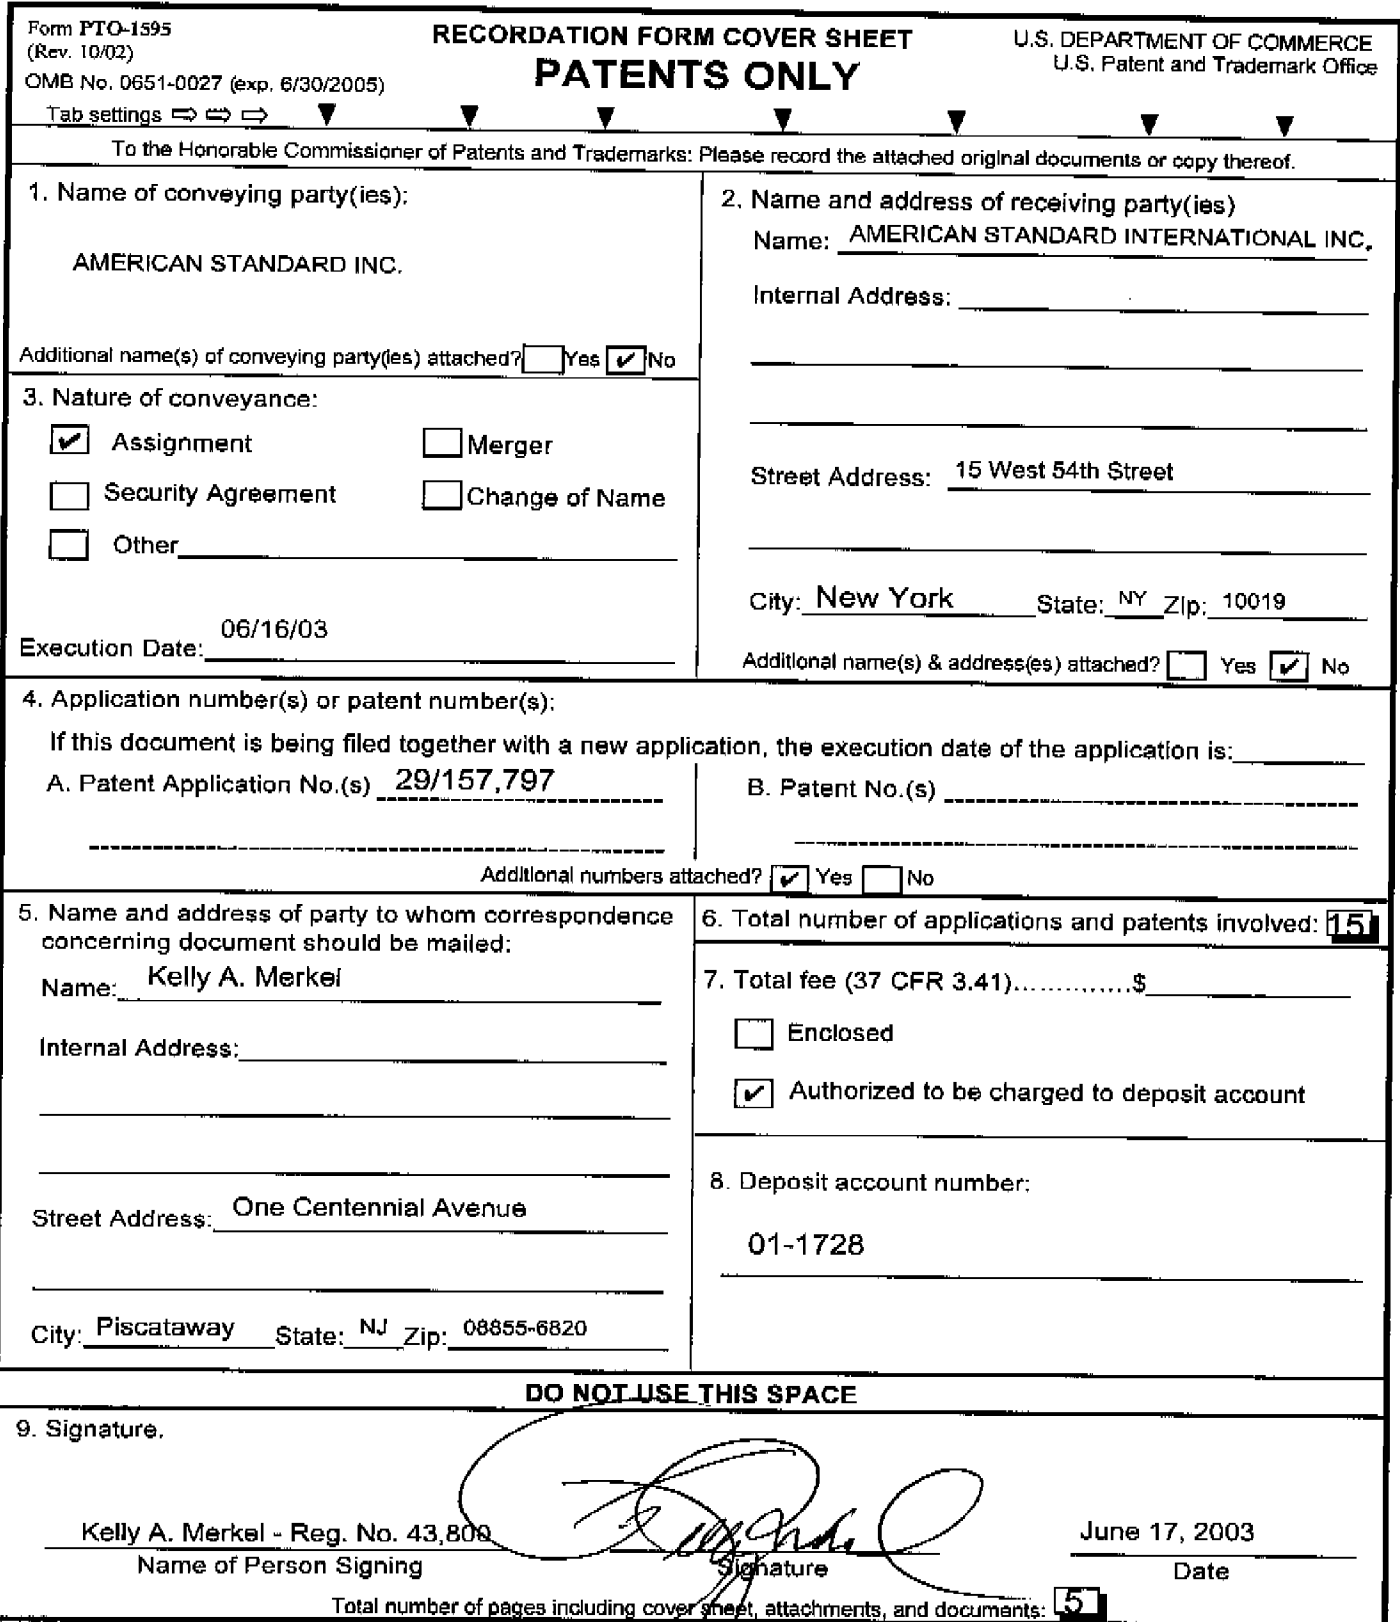 Form PTO-1595
(Rev. 10/02)
OMB No. 0651-0027 (exp. 6/30/2005)
Tab settings
RECORDATION FORM COVER SHEET
PATENTS ONLY
U.S. DEPARTMENT OF COMMERCE
U.S. Patent and Trademark Office
To the Honorable Commissioner of Patents and Trademarks: Please record the attached original documents or copy thereof.
1. Name of conveying party(ies):
AMERICAN STANDARD INC.
Additional name(s) of conveying party(ies) attached? Yes ✔ No
2. Name and address of receiving party(ies)
Name: AMERICAN STANDARD INTERNATIONAL INC.
Internal Address:
Street Address: 15 West 54th Street
City: New York State: NY Zip: 10019
Additional name(s) & address(es) attached? Yes ✔ No
3. Nature of conveyance:
✔ Assignment Merger
Security Agreement Change of Name
Other
Execution Date: 06/16/03
4. Application number(s) or patent number(s):
If this document is being filed together with a new application, the execution date of the application is:
A. Patent Application No.(s) 29/157,797
B. Patent No.(s)
Additional numbers attached? ✔ Yes No
5. Name and address of party to whom correspondence
concerning document should be mailed:
Name: Kelly A. Merkel
Internal Address:
Street Address: One Centennial Avenue
City: Piscataway State: NJ Zip: 08855-6820
6. Total number of applications and patents involved: 15
7. Total fee (37 CFR 3.41)..............$
Enclosed
✔ Authorized to be charged to deposit account
8. Deposit account number:
01-1728
DO NOT USE THIS SPACE
9. Signature.
Kelly A. Merkel - Reg. No. 43,800
Name of Person Signing
Signature
June 17, 2003
Date
Total number of pages including cover sheet, attachments, and documents: 5